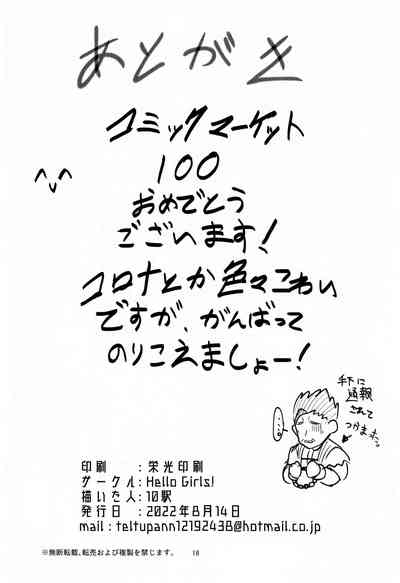 あとがき
コミックマーケット
100
おめでとう
ございます!
コロナとか色々こわい
ですが、がんばって
のりこえましょー!
手下に
通報
されて
つかまった
印刷　　：栄光印刷
サークル：Hello Girls!
描いた人：10駅
発行日　：2022年8月14日
mail : teltupann12192438@hotmail.co.jp
※無断転載、転売および複製を禁じます。
18